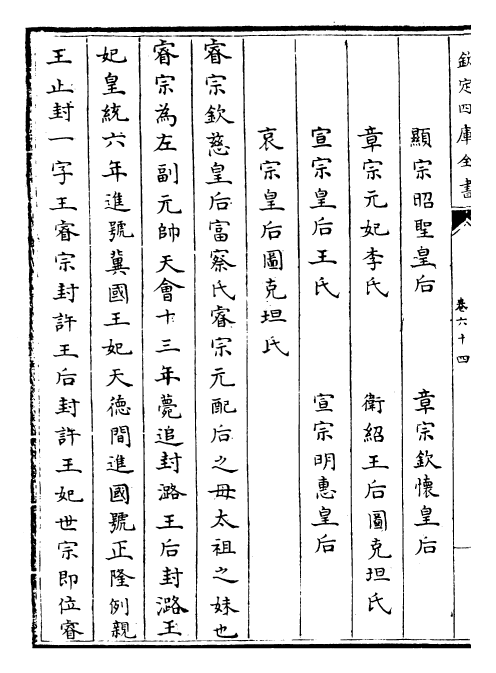 欽定四庫全書
卷六十四
顯宗昭聖皇后　章宗欽懷皇后
章宗元妃李氏　衛紹王后圖克坦氏
宣宗皇后王氏　宣宗明惠皇后
哀宗皇后圖克坦氏
睿宗欽慈皇后富察氏睿宗元配后之母太祖之妹也
睿宗為左副元帥天會十三年薨追封潞王后封潞王
妃皇統六年進號冀國王妃天德間進國號正隆例親
王止封一字王睿宗封許王后封許王妃世宗即位睿